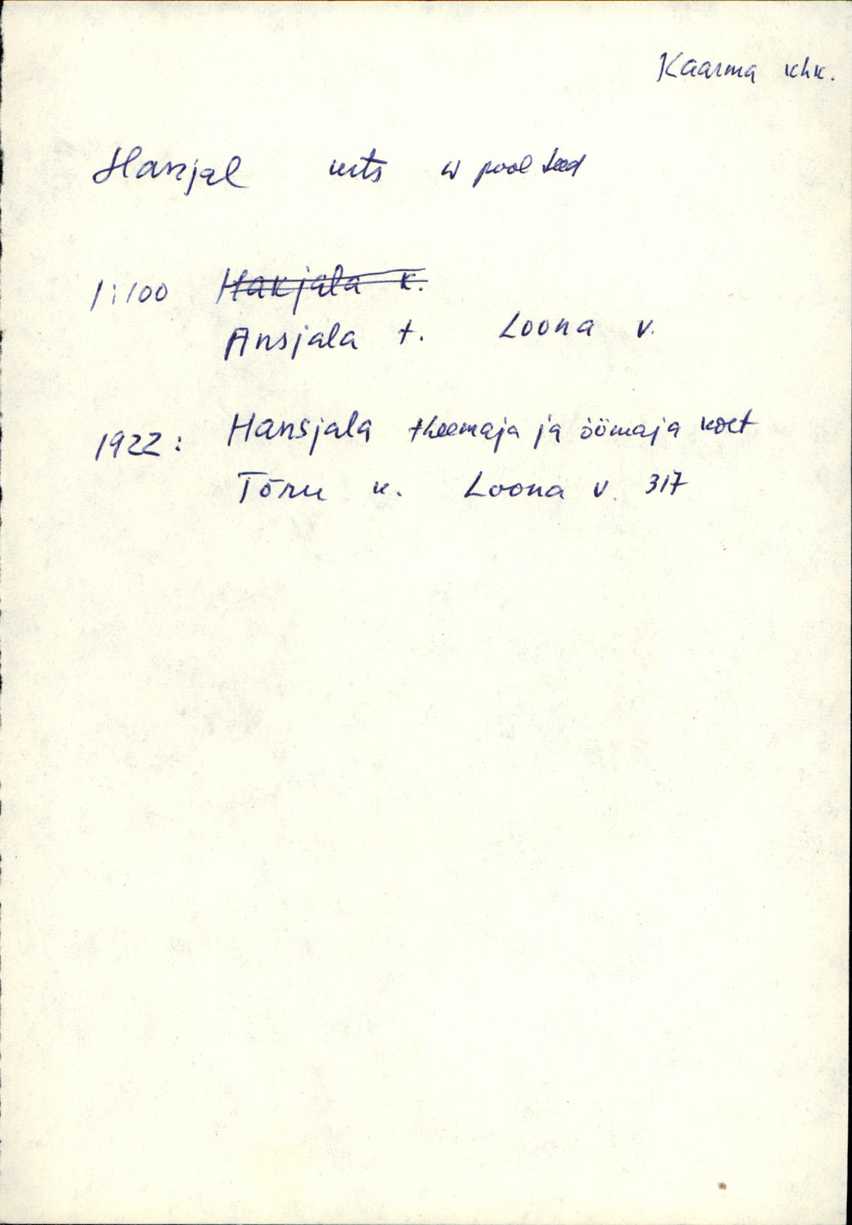 Kaarma khk.
Hansjal krts W pool teed
1:100 Hakjala k.
Ansjala t. Loona v.
1922: Hansjala theemaja ja öömaja koet
Tõru k. Loona v. 317